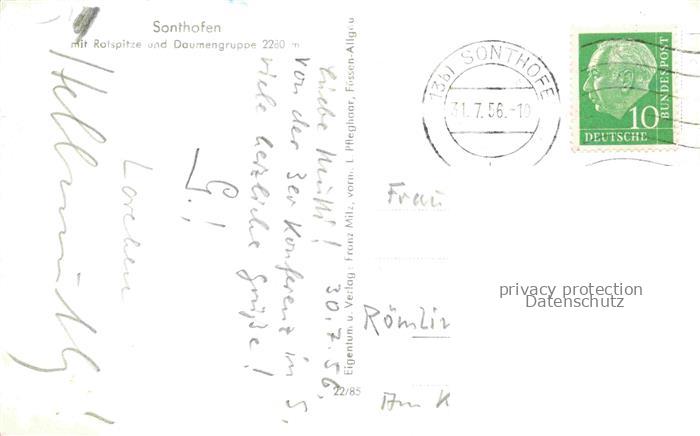 Sonthofen
mit Rotspitze und Daumengruppe 2280 m
30.7.56.
Liebe Mutti!
Von der 3er Konferenz in S.
viele herzliche Grüße!
G.!
Lorchen
Eigentum u. Verlag: Franz Milz, vorm. L. Pfleghaar, Füssen-Allgäu
22/85
(13b) SONTHOFE
31.7.56.-10
10
DEUTSCHE
BUNDESPOST
Frau
Römlin
Am K
privacy protection
Datenschutz